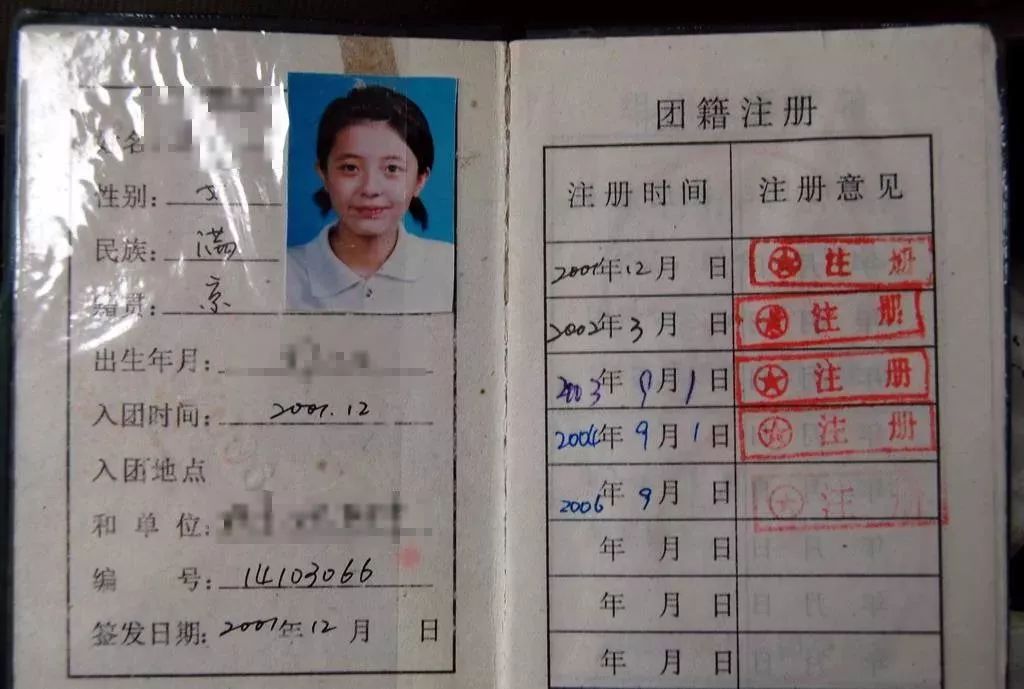 姓名
性别: 女
民族: 满
籍贯: 京
出生年月:
入团时间: 2001.12
入团地点
和单位:
编号: 14103066
签发日期: 2001年12月 日
团籍注册
注册时间 注册意见
2001年12月 日 注册
2002年3月 日 注册
2003年9月1日 注册
2004年9月1日 注册
2006年9月 日 注册
年 月 日
年 月 日
年 月 日